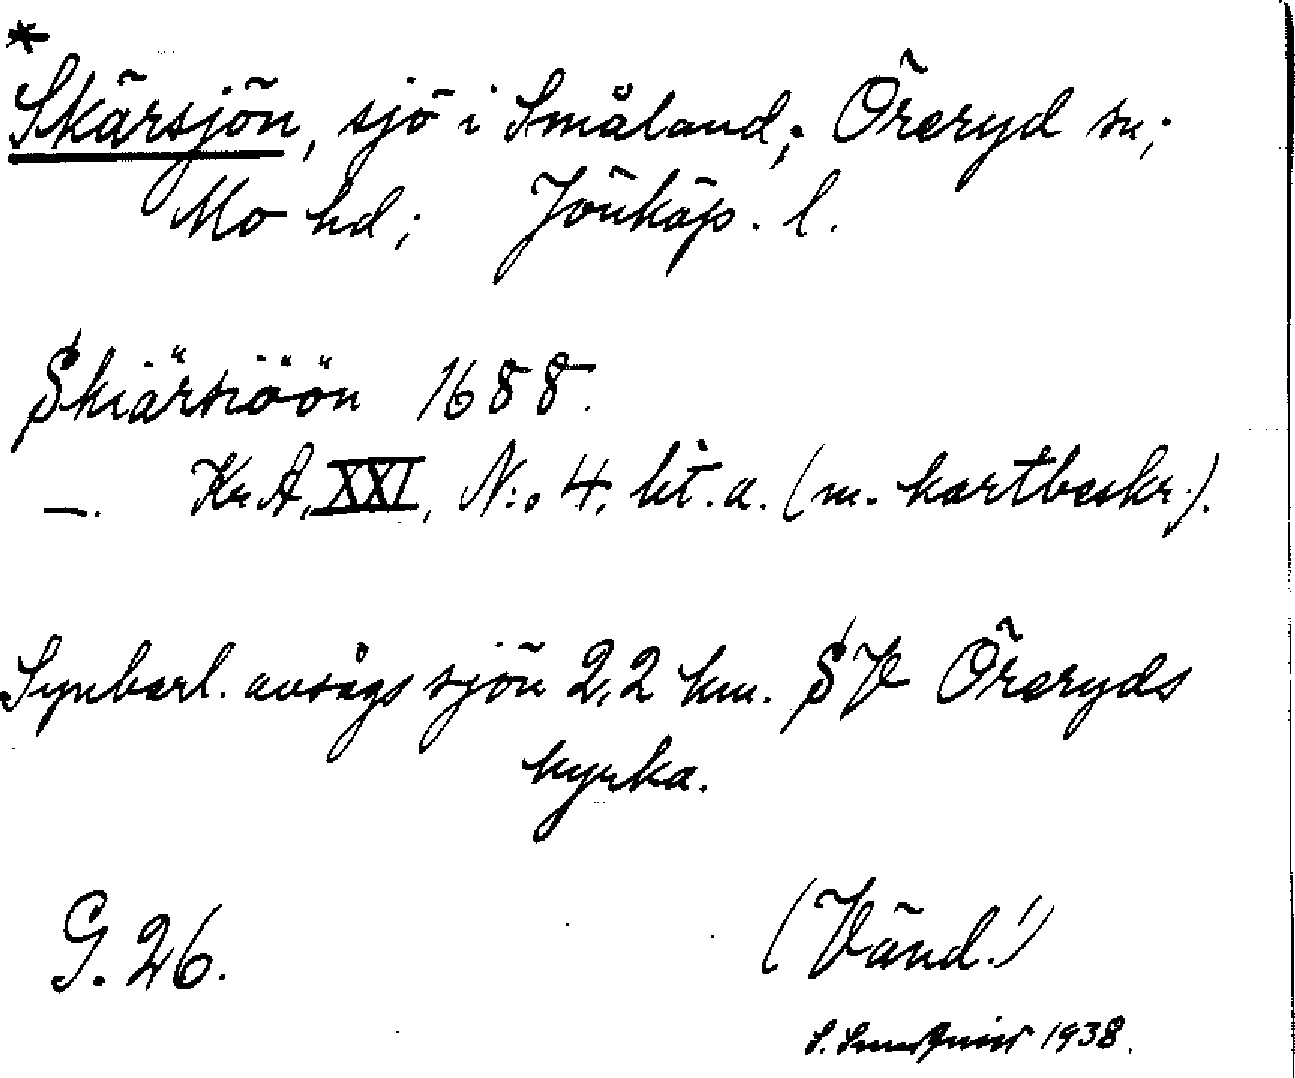 *
Skärsjön, sjö i Småland; Öreryd sn;
Mo hd; Jönköp. l.
Skiärsiöön 1688.
—. Kr.A, XXI, N:o 4, lit. a. (m. kartbeskr.).
Synbarl. avsågs sjön 2,2 km. SV Öreryds
kyrka.
G. 26.
(Vänd!)
S. 1938.